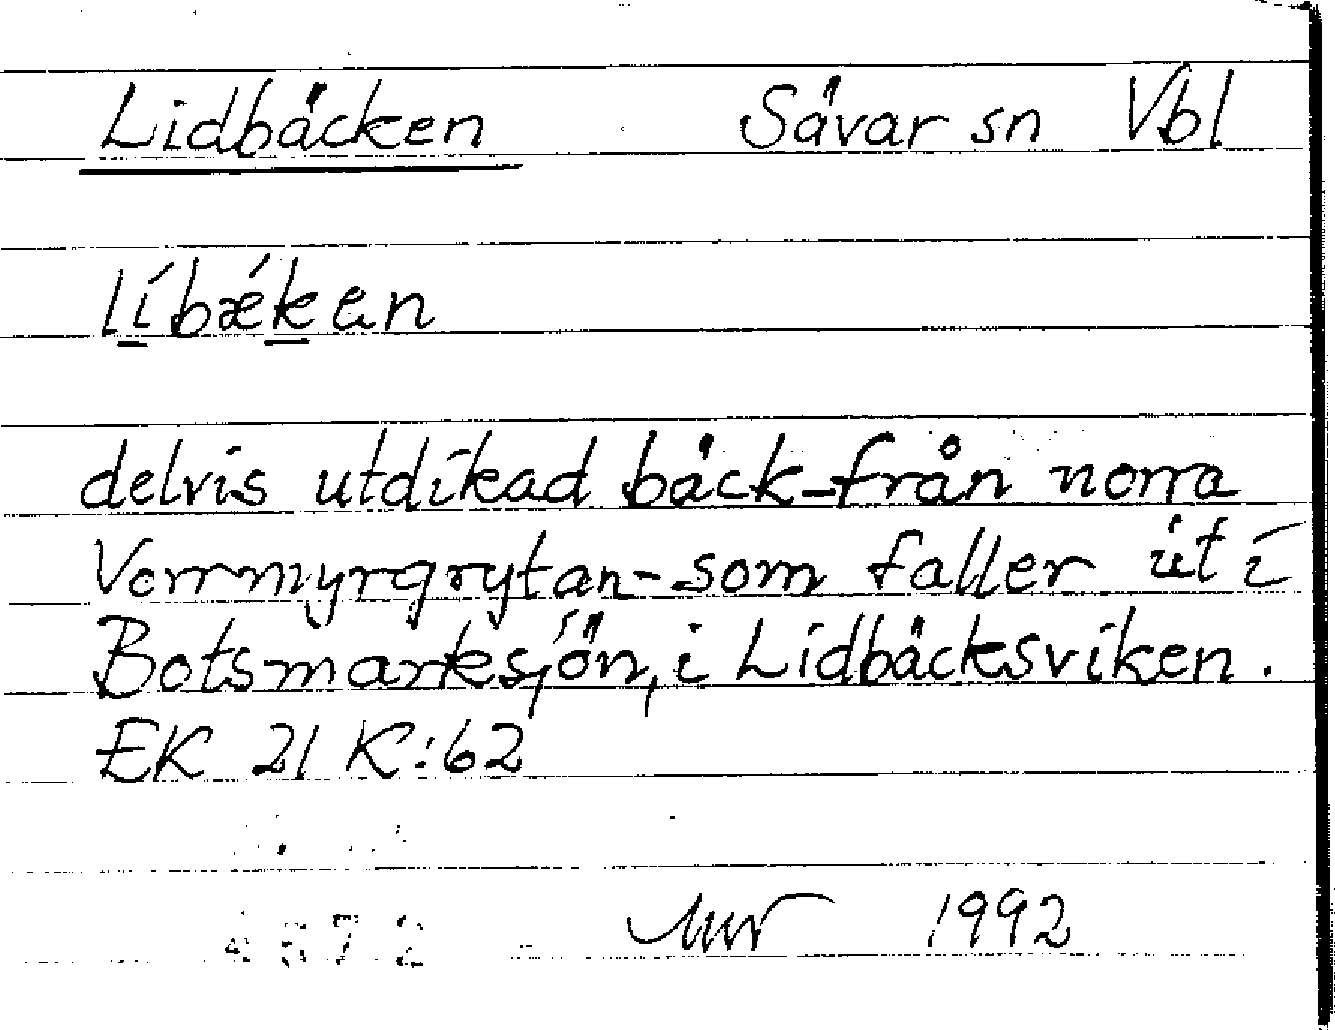 Lidbäcken Sävar sn Vbl
líbǽken
delvis utdikad bäck-från norra
Vorrmyrgrytan-som faller ut i
Botsmarksjön, i Lidbäcksviken.
EK 21 K:62
1992